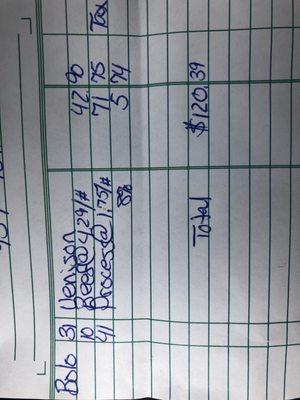 Bolo 31 Venison
10 Beef@4.29/# 42 90
41 Process@1.75/# 71 75 Tax
8% 5 74
Total $120.39